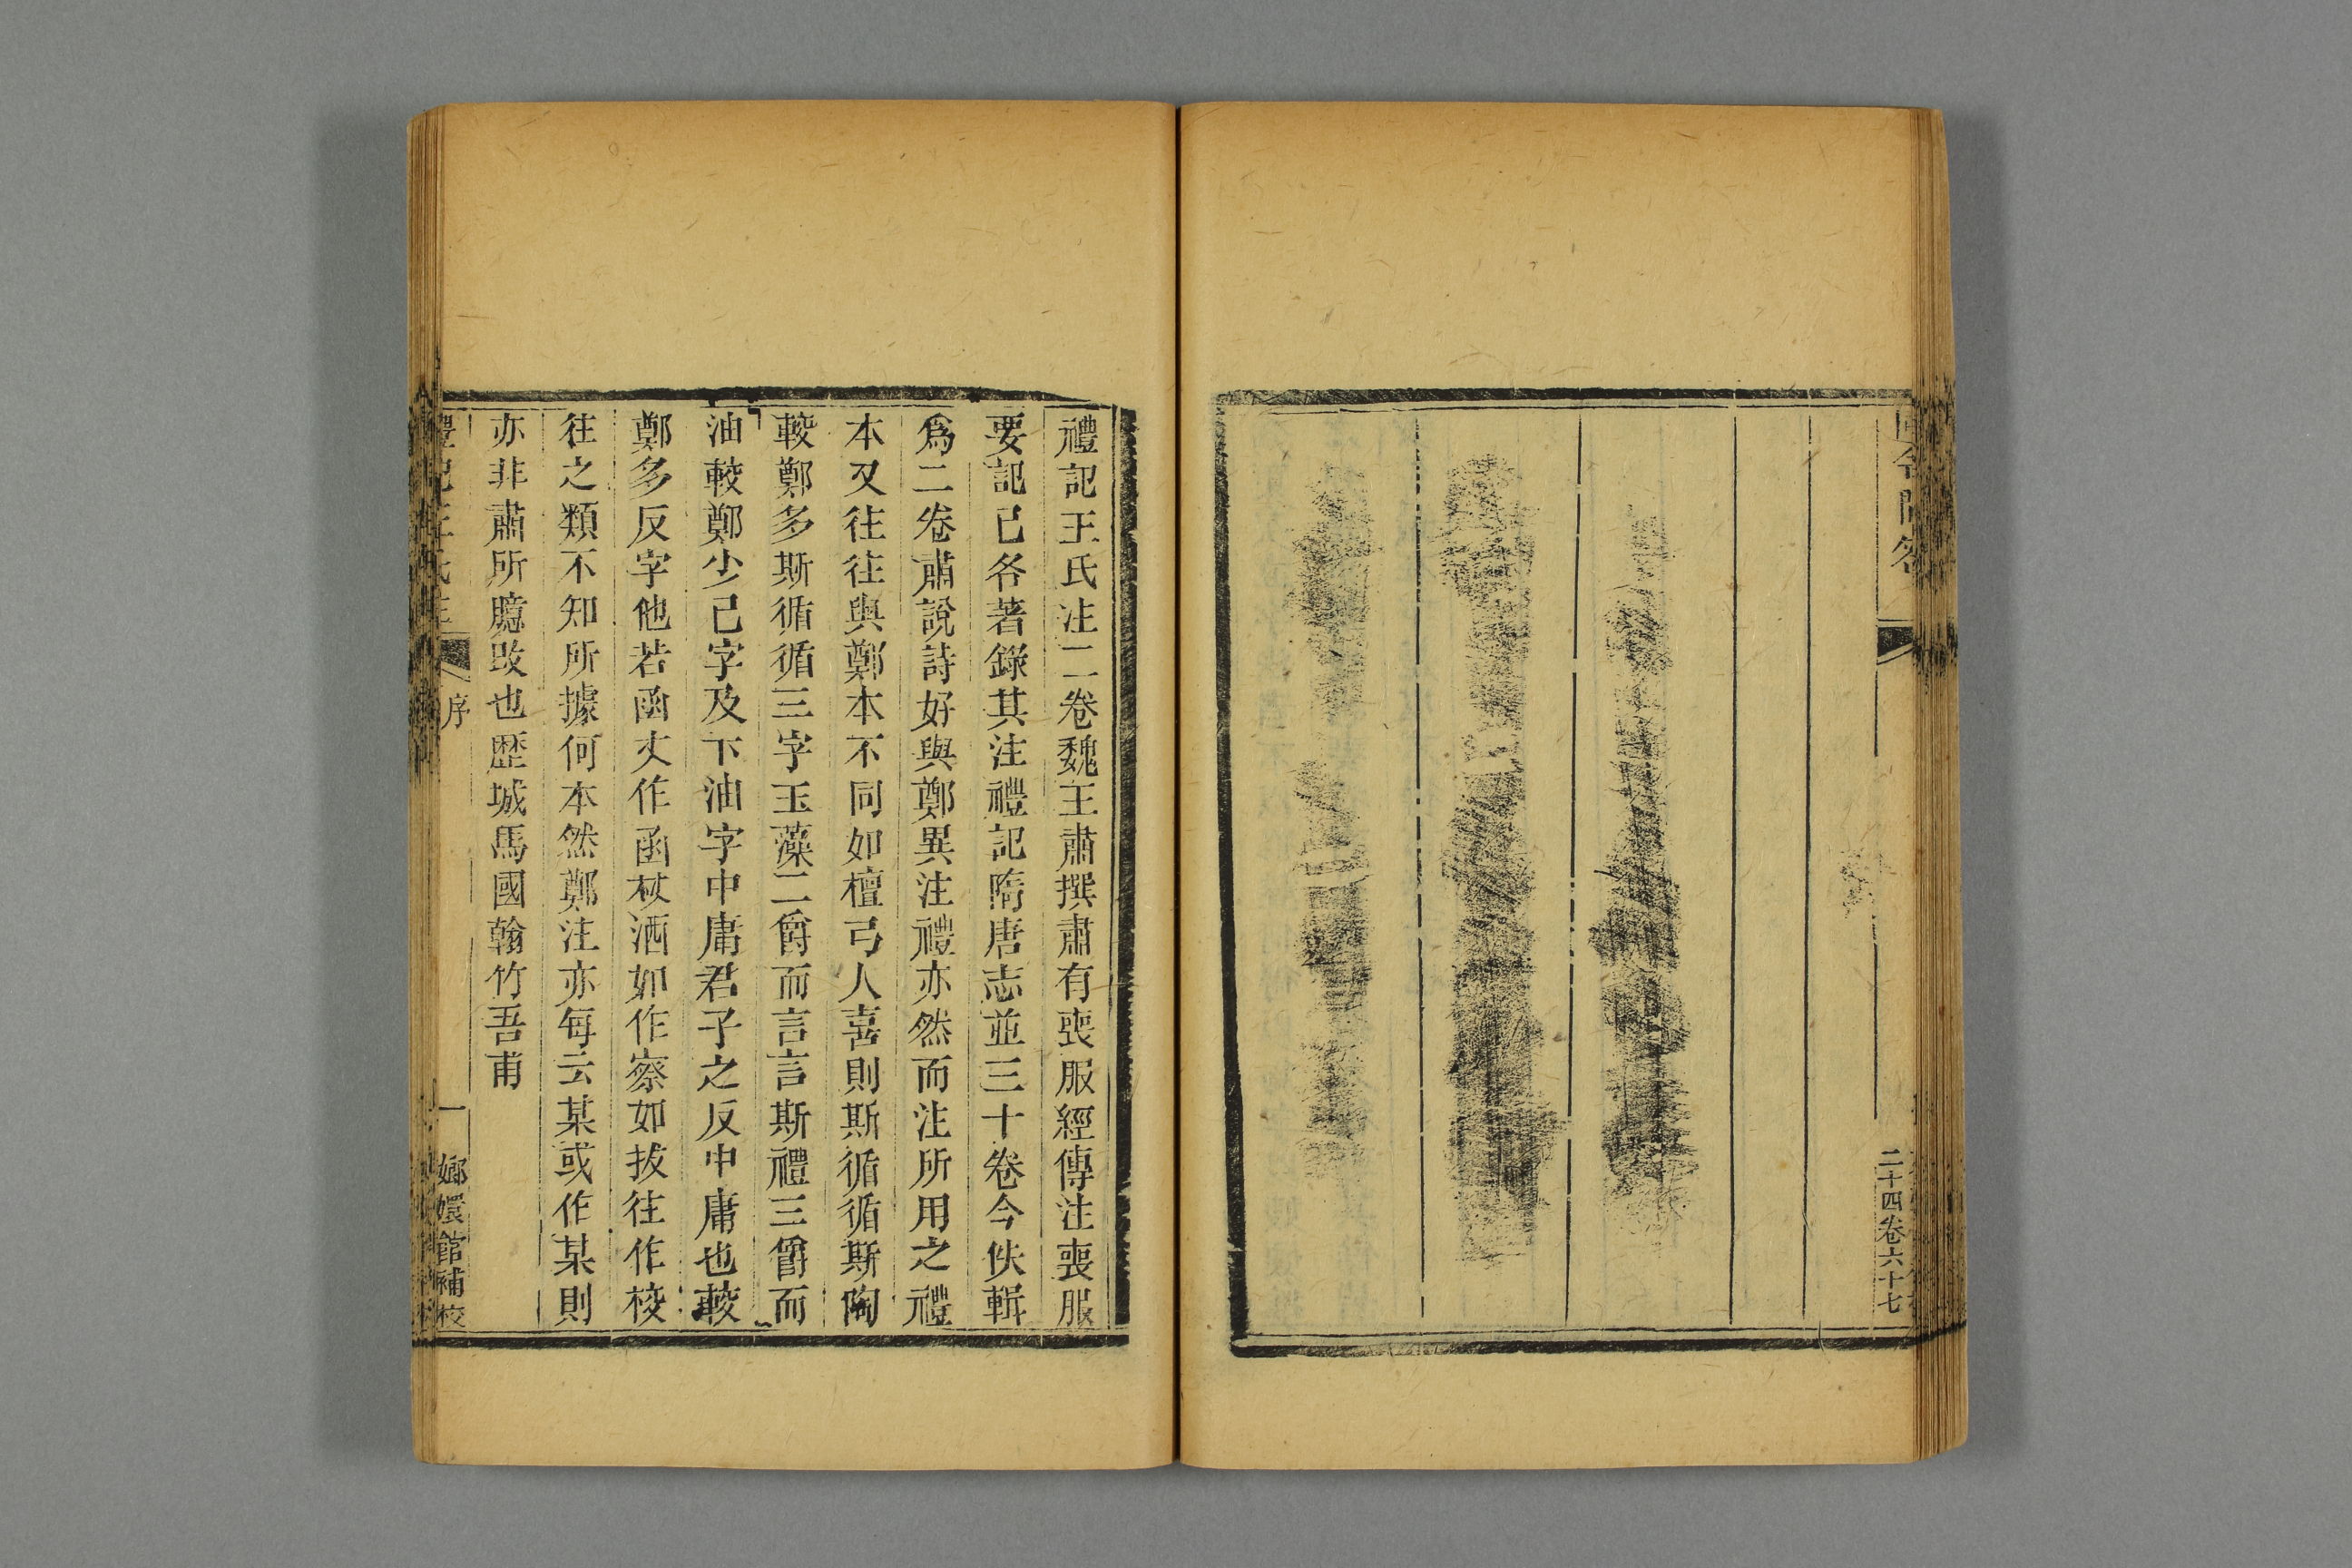 二十四卷六十七
禮記王氏注二卷魏王肅撰肅有喪服經傳注喪服
要記已各著錄其注禮記隋唐志並三十卷今佚輯
爲二卷肅說詩好與鄭異注禮亦然而注所用之禮
本又往往與鄭本不同如檀弓人喜則斯循循斯陶
較鄭多斯循循三字玉藻二爵而言言斯禮三爵而
油較鄭少已字及下油字中庸君子之反中庸也較
鄭多反字他若函丈作函杖洒如作察如拔往作校
往之類不知所據何本然鄭注亦每云某或作某則
亦非肅所臆改也歴城馬國翰竹吾甫
序
一
嫏嬛館補校